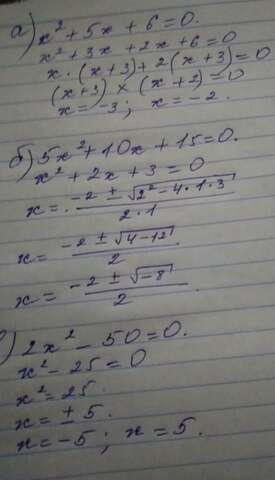 а) x² + 5x + 6 = 0.
x² + 3x + 2x + 6 = 0
x · (x+3) + 2(x+3) = 0
(x+3) × (x+2) = 0
x = -3; x = -2.
б) 5x² + 10x + 15 = 0.
x² + 2x + 3 = 0
x = (-2 ± √(2² - 4·1·3)) / (2·1)
x = (-2 ± √(4-12)) / 2
x = (-2 ± √(-8)) / 2
) 2x² - 50 = 0.
x² - 25 = 0
x² = 25.
x = ± 5.
x = -5; x = 5.